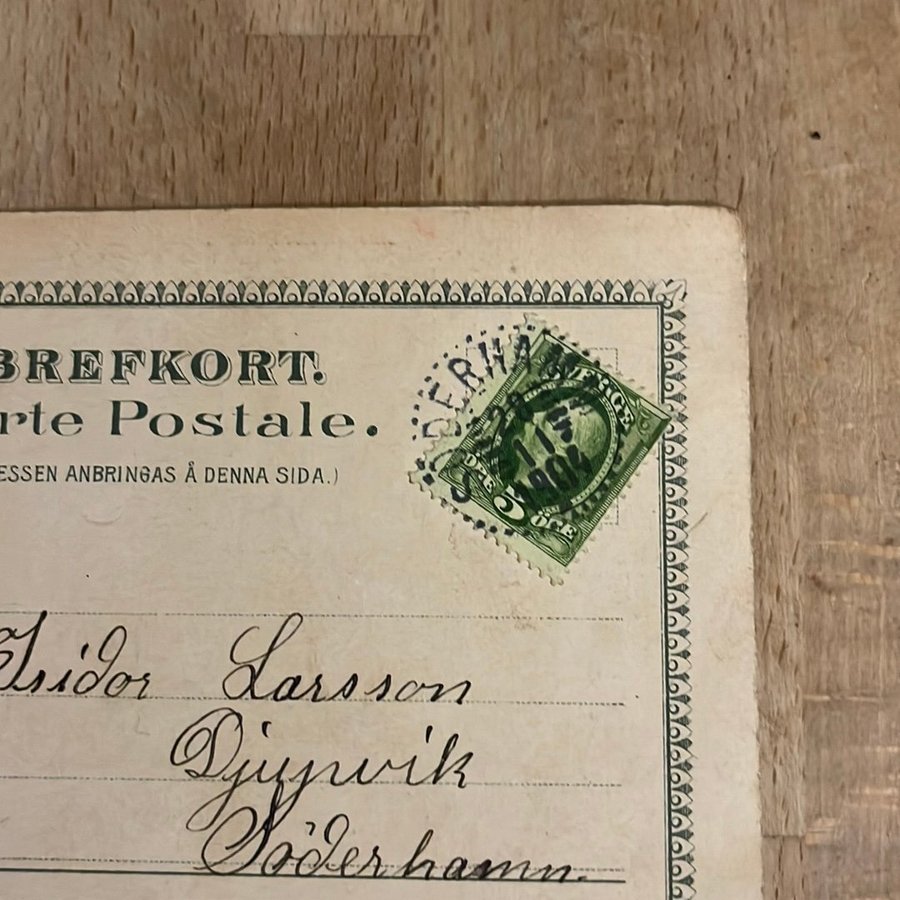 BREFKORT.
rte Postale.
ESSEN ANBRINGAS Å DENNA SIDA.)
SÖDERHAMN
23
11
1904
SVERGE
5
ÖRE
ÖRE
Isidor Larsson
Djupvik
Söderhamn.